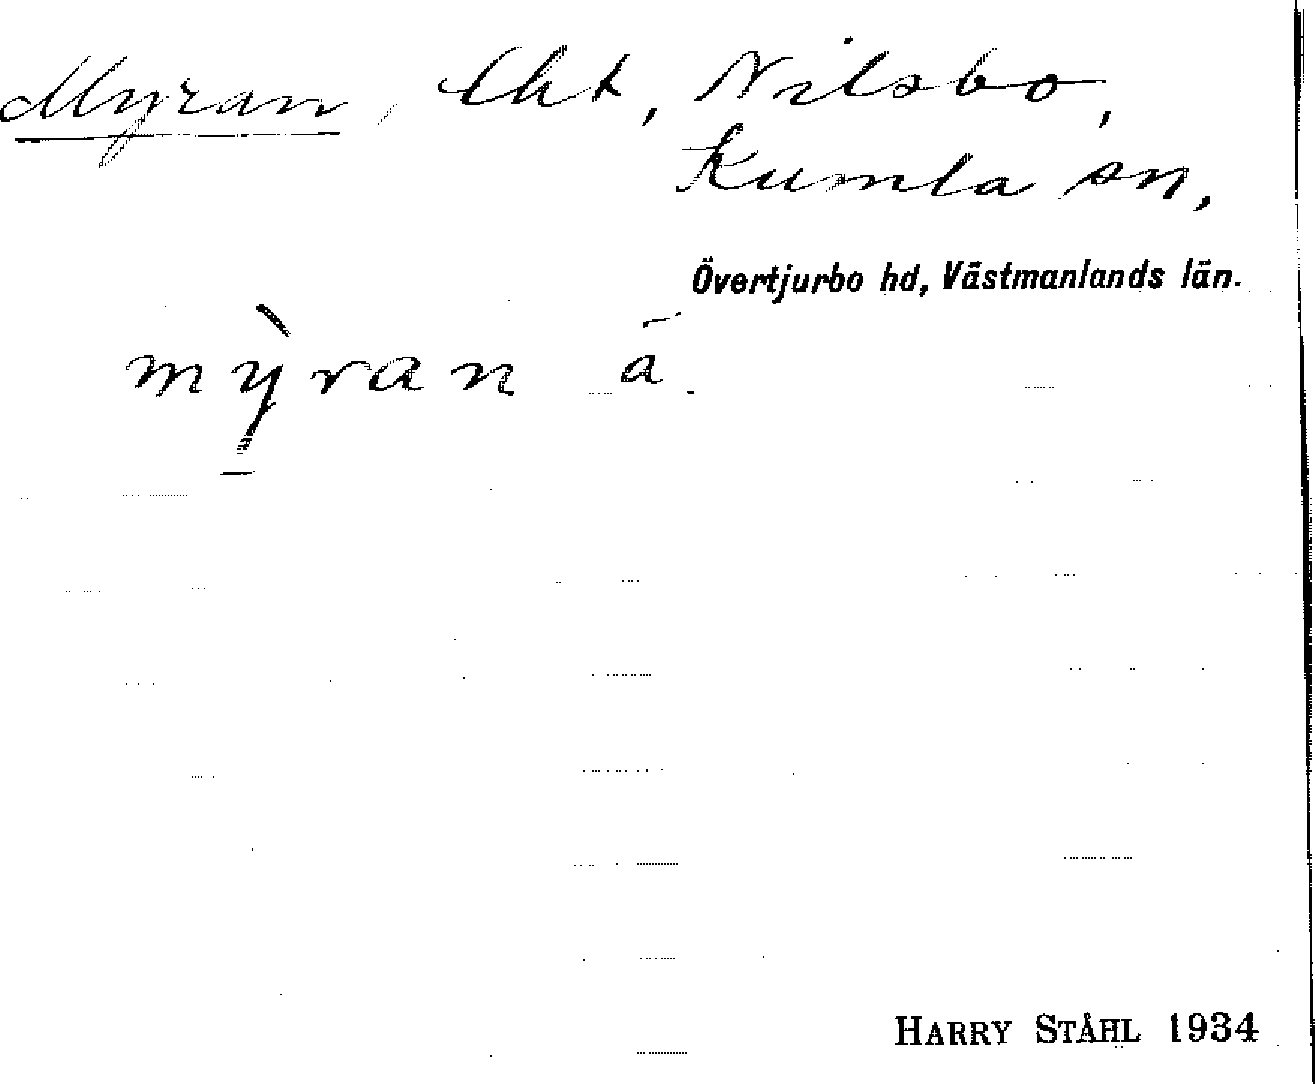 Myran, lht, Nilsbo,
Kumla sn,
Övertjurbo hd, Västmanlands län.
mỳran ā.
HARRY STÅHL 1934